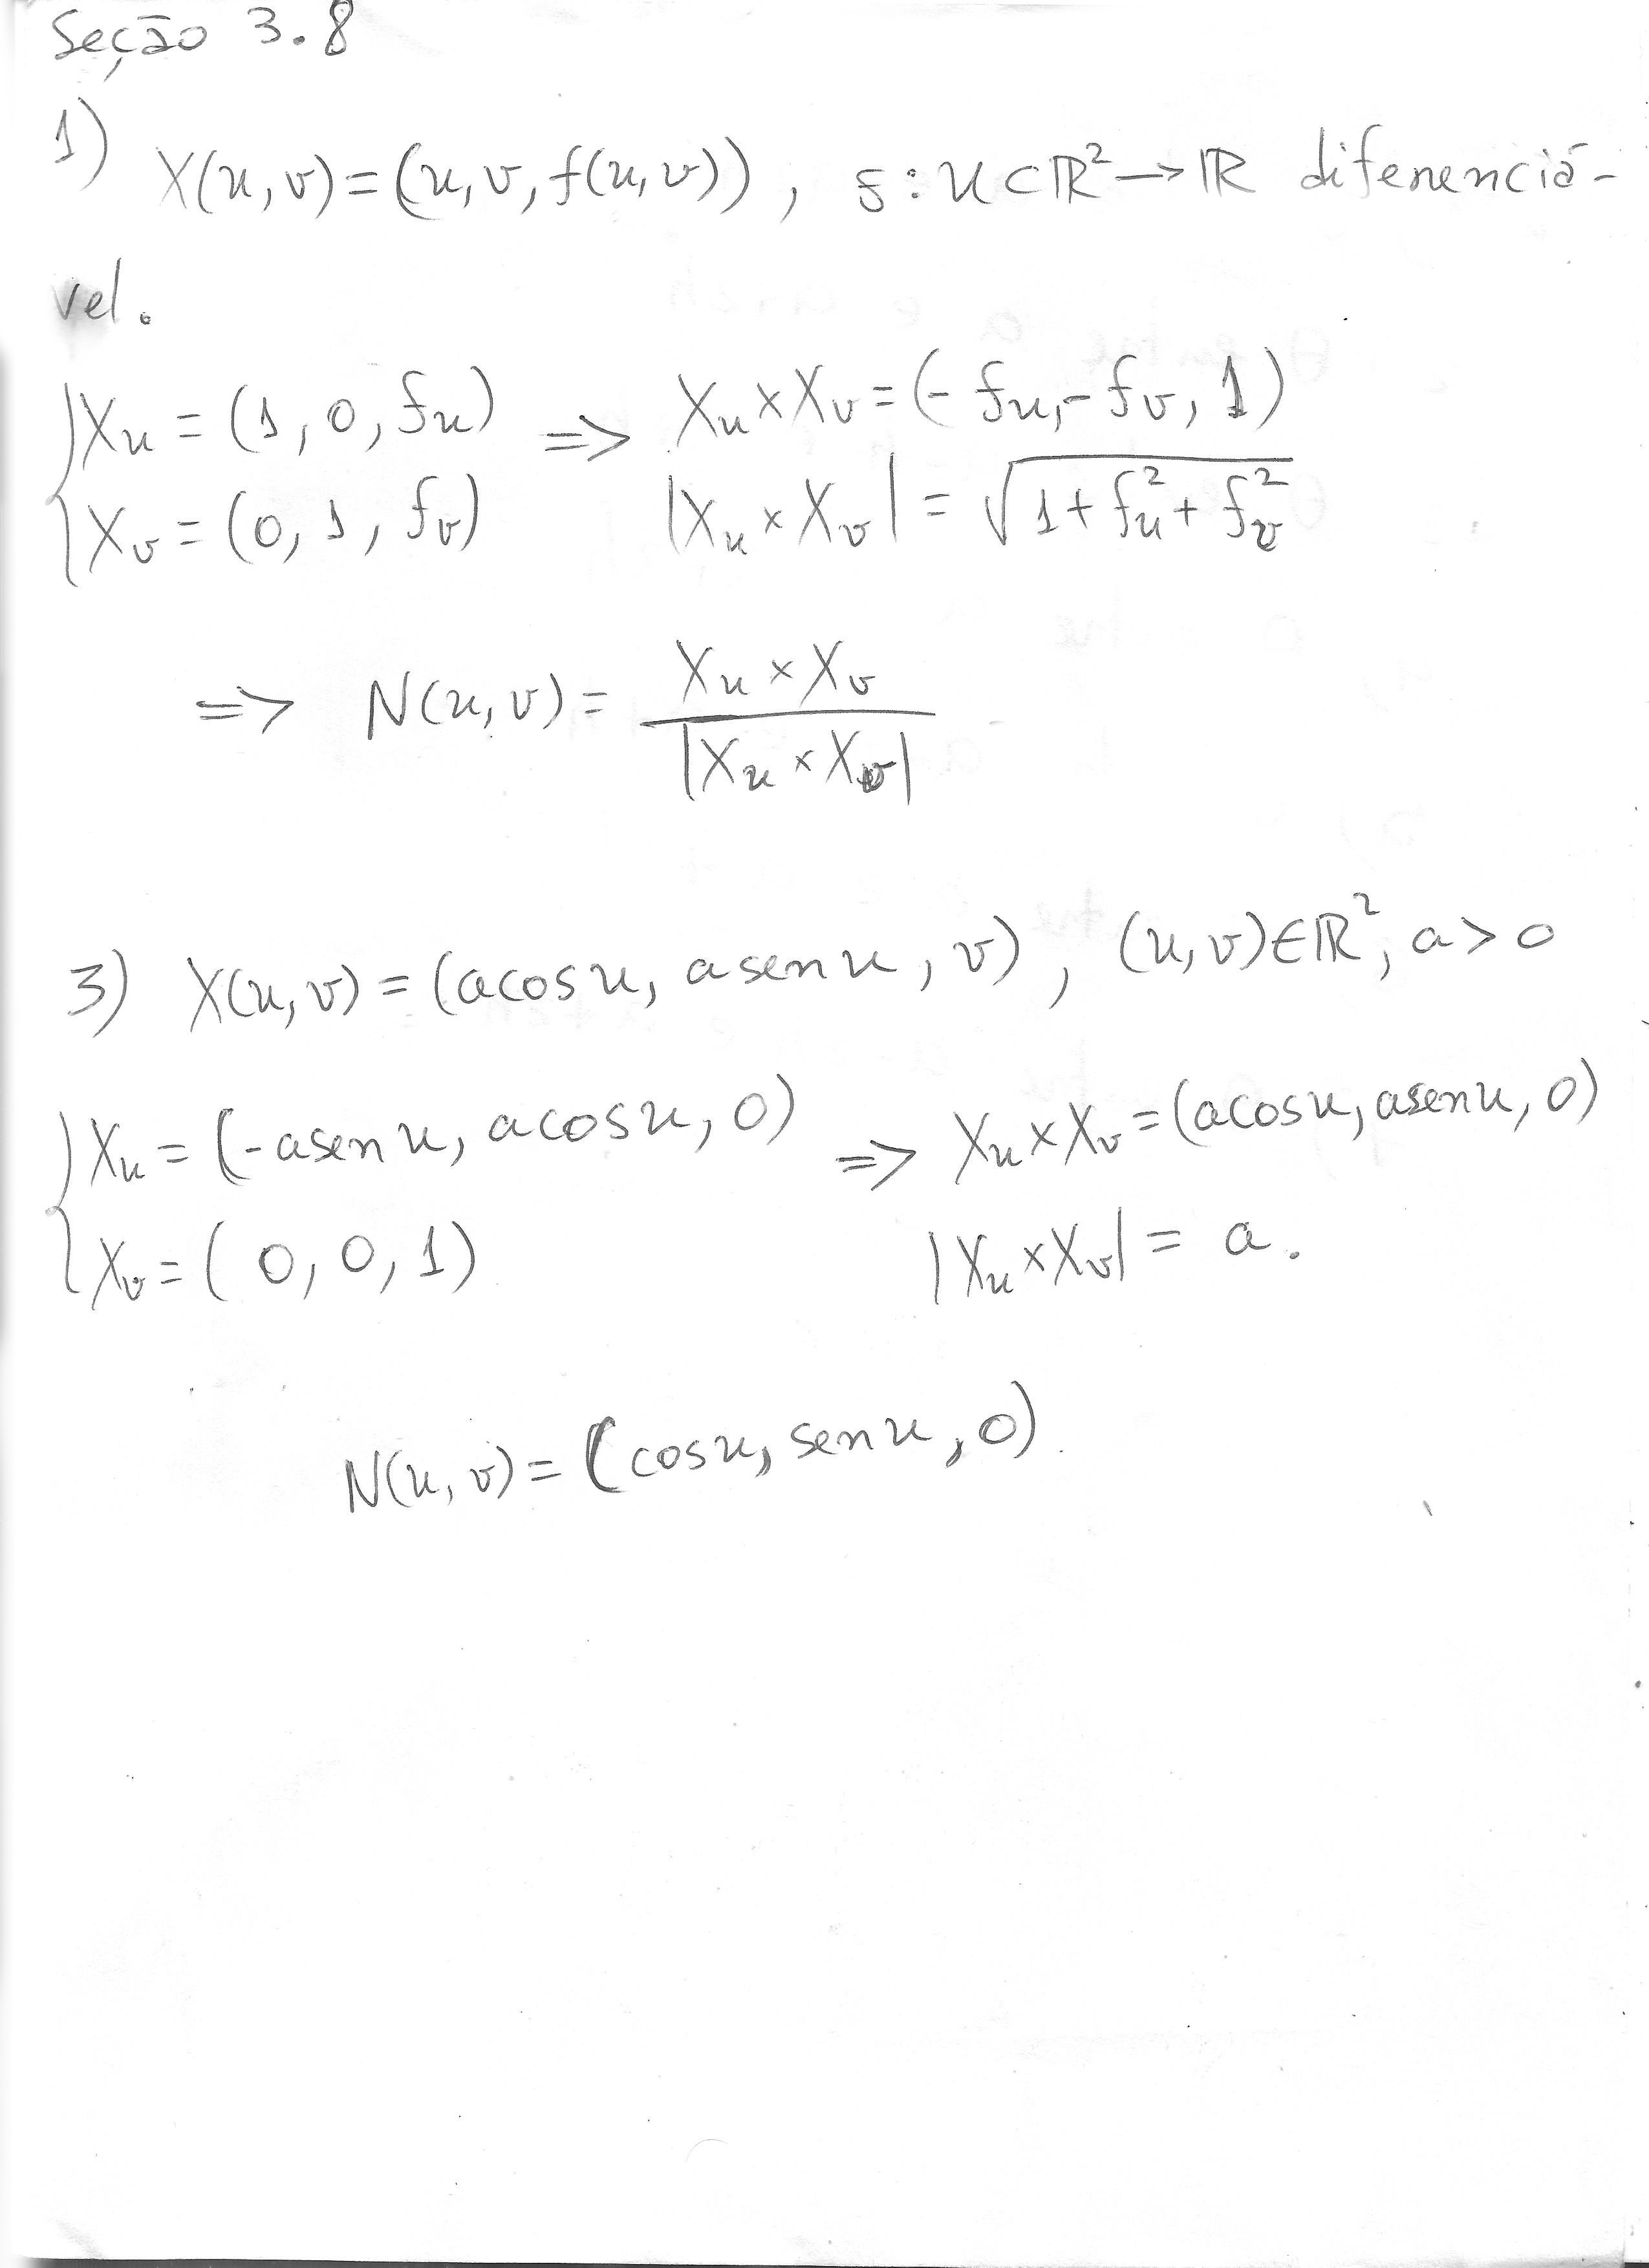 Seção 3.8
1) X(u,v)=(u,v,f(u,v)), f:U⊂ℝ²→ℝ diferenciá-
vel.
{Xu = (1,0,fu) => Xu×Xv=(-fu,-fv,1)
{Xv=(0,1,fv) |Xu×Xv|=√(1+fu²+fv²)
=> N(u,v)= Xu×Xv / |Xu×Xv|
3) X(u,v)=(acosu, asenu, v), (u,v)∈ℝ², a>0
{Xu=(-asenu, acosu, 0) => Xu×Xv=(acosu, asenu, 0)
{Xv=(0,0,1) |Xu×Xv|= a.
N(u,v)=(cosu, senu, 0).